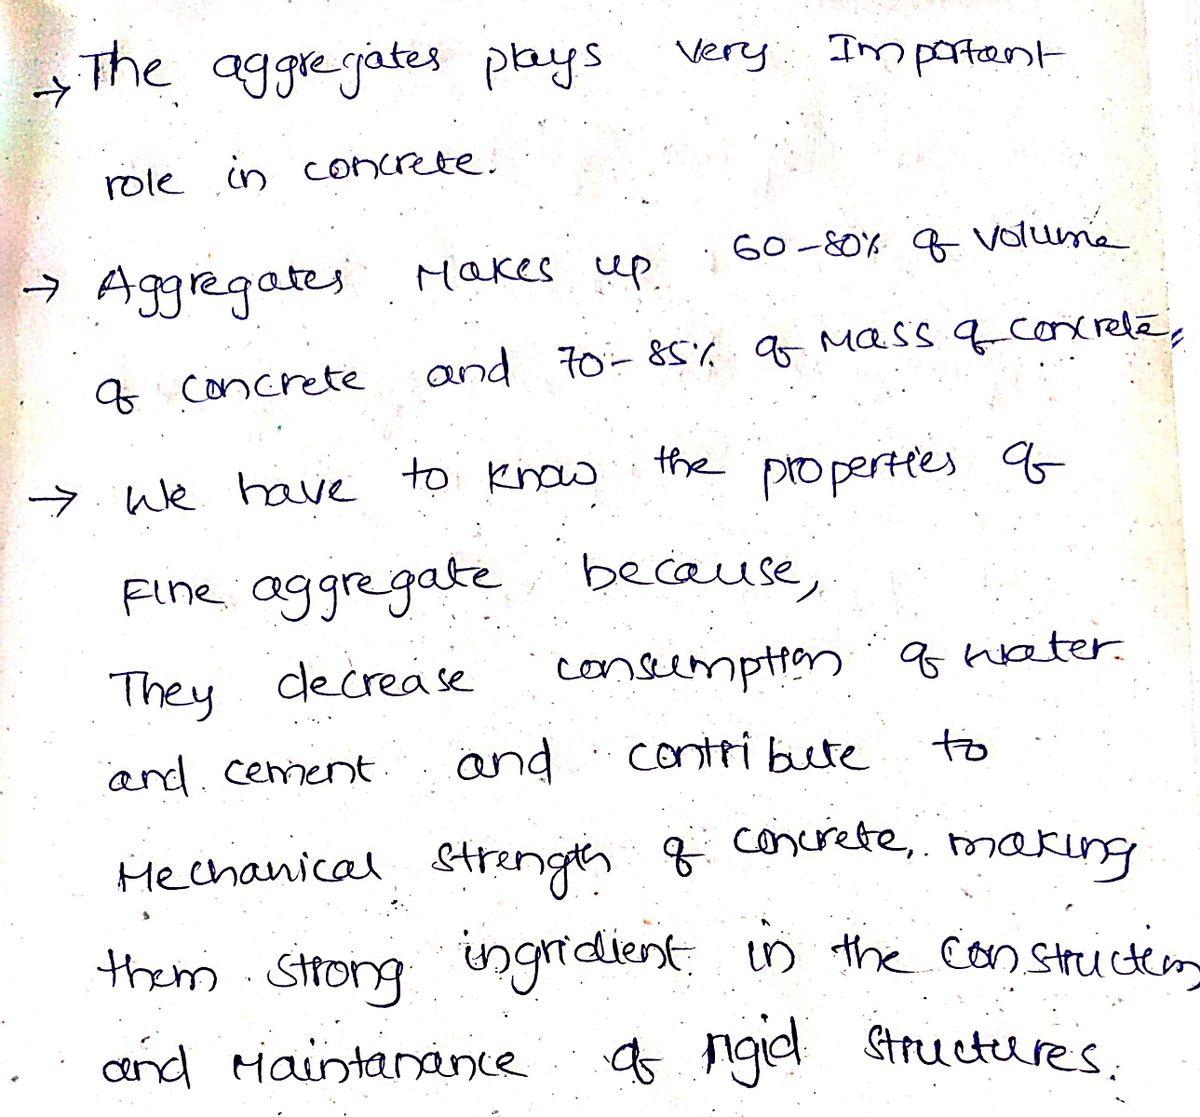 → The aggregates plays very Important
role in concrete.
→ Aggregates Makes up 60-80% of volume
of concrete and 70-85% of Mass of concrete,
→ We have to know the properties of
Fine aggregate because,
They decrease consumption of water
and cement and contribute to
Mechanical strength of concrete, making
them strong ingridient in the construction
and Maintanance of rigid structures.